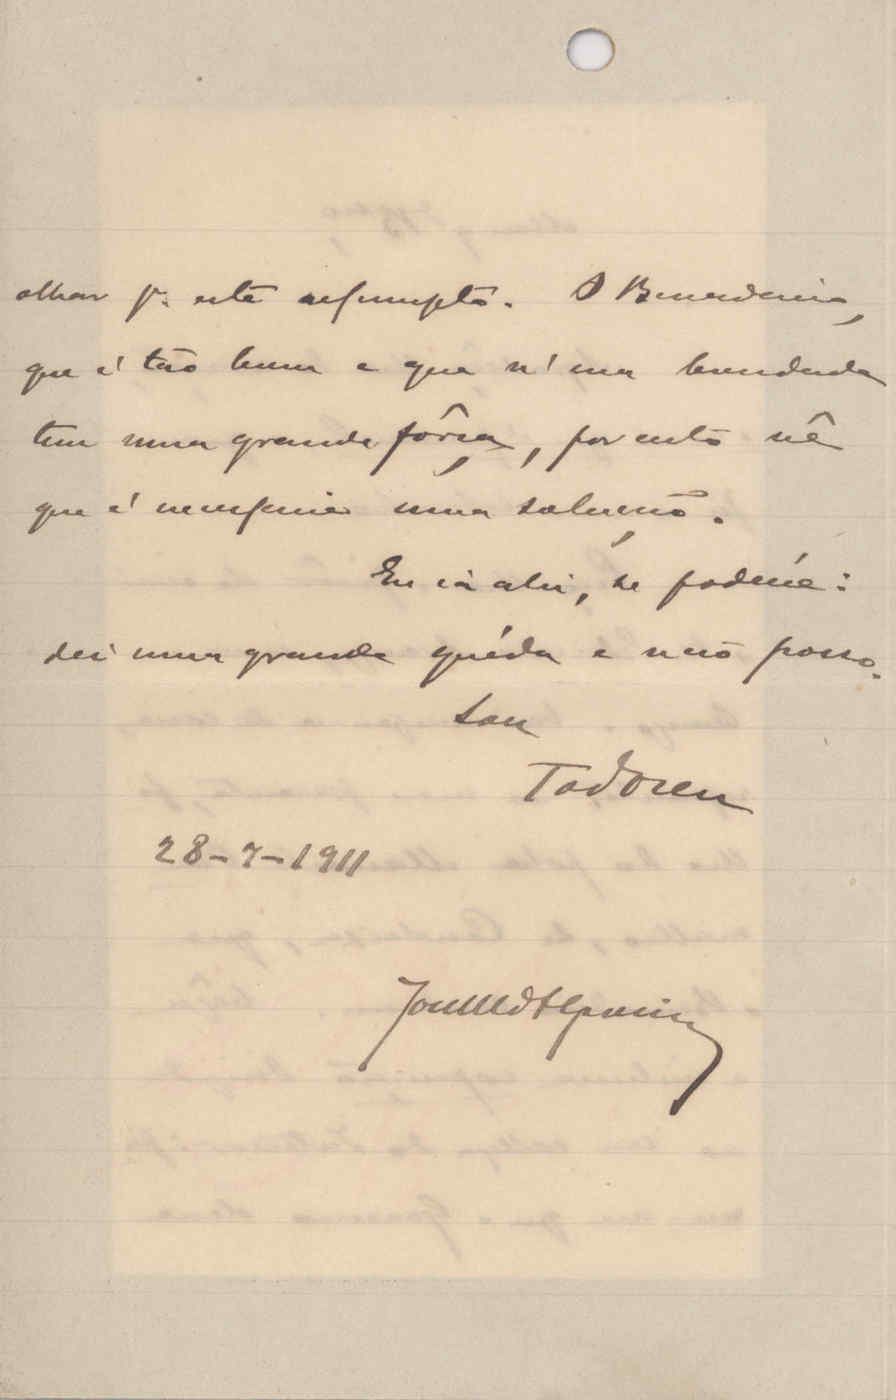 olhar p.ª este assumpto. O Bernardino,
que é tão bom e que n'uma
tem uma grande fôrça, por certo vê
que é necessaria uma solução.
Eu ia ahi, se podésse:
dei uma grande quéda e não posso.
Sou
Todo seu
28-7-1911